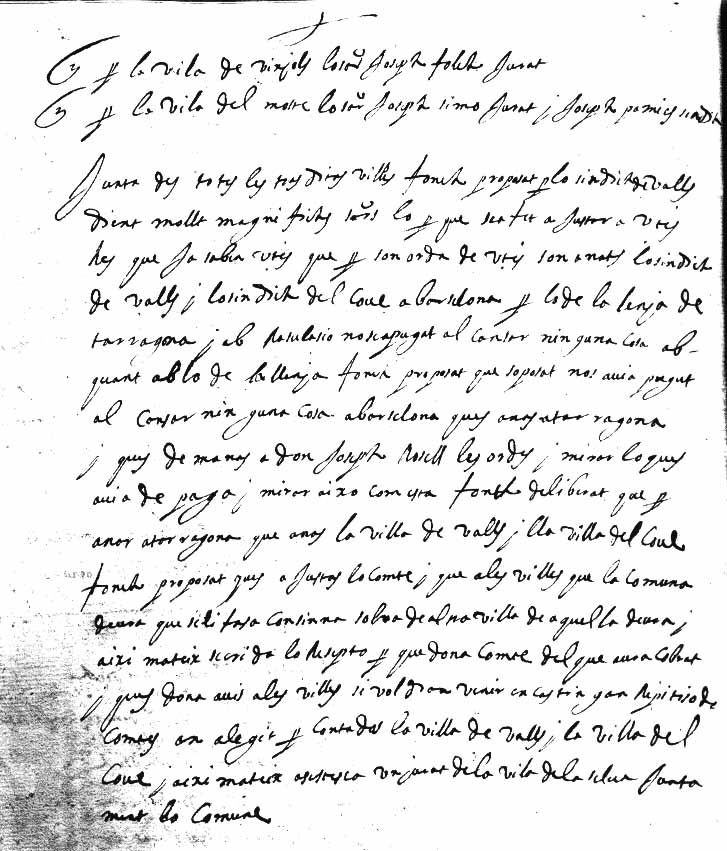 per la vila de vinyols lo sr Joseph folch Jurat
per la vila del moste lo sr Joseph simo Jurat j Joseph pamies sindich
Junta des totes les tres dites villes fonch proposat per lo sindich de valls
dient mollt magnifichs srs lo per que se a fet a Justar a vtes
Res que Ja sabra vtes que per son orda de vtes son anats lo sindich
de valls j lo sindich del Coue a barselona per lo de la lenja de
tarragona j ab Rasulasio nos capugat al Cansar ninguna Cosa ab
quant ab lo de la llenja fonch proposat que soposat nos auia pugut
al Consar ninguna Cosa a barselona ques anas a tarragona
j ques demanas a don Joseph Rosell les ordes j mirar lo ques
auia de paga j mirar aixo com esta fonch deliberat que per
anar a tarragona que anas la villa de valls j lla villa del Coue
fonch proposat ques a Justas lo Comte j que a les villes que la Comuna
deura que se li fasa Consinna sobra de alna villa de aquella deura j
aixi mateix se crida lo Resepto per que dona Comte del que aura Cobrat
j ques dona auis a les villes si voldran venir en
Comtes an alegit per Contados la villa de valls j la villa del
Coue j aixi mateix asistesca vn jurat de la vila de la selua Junta
ment lo Comune